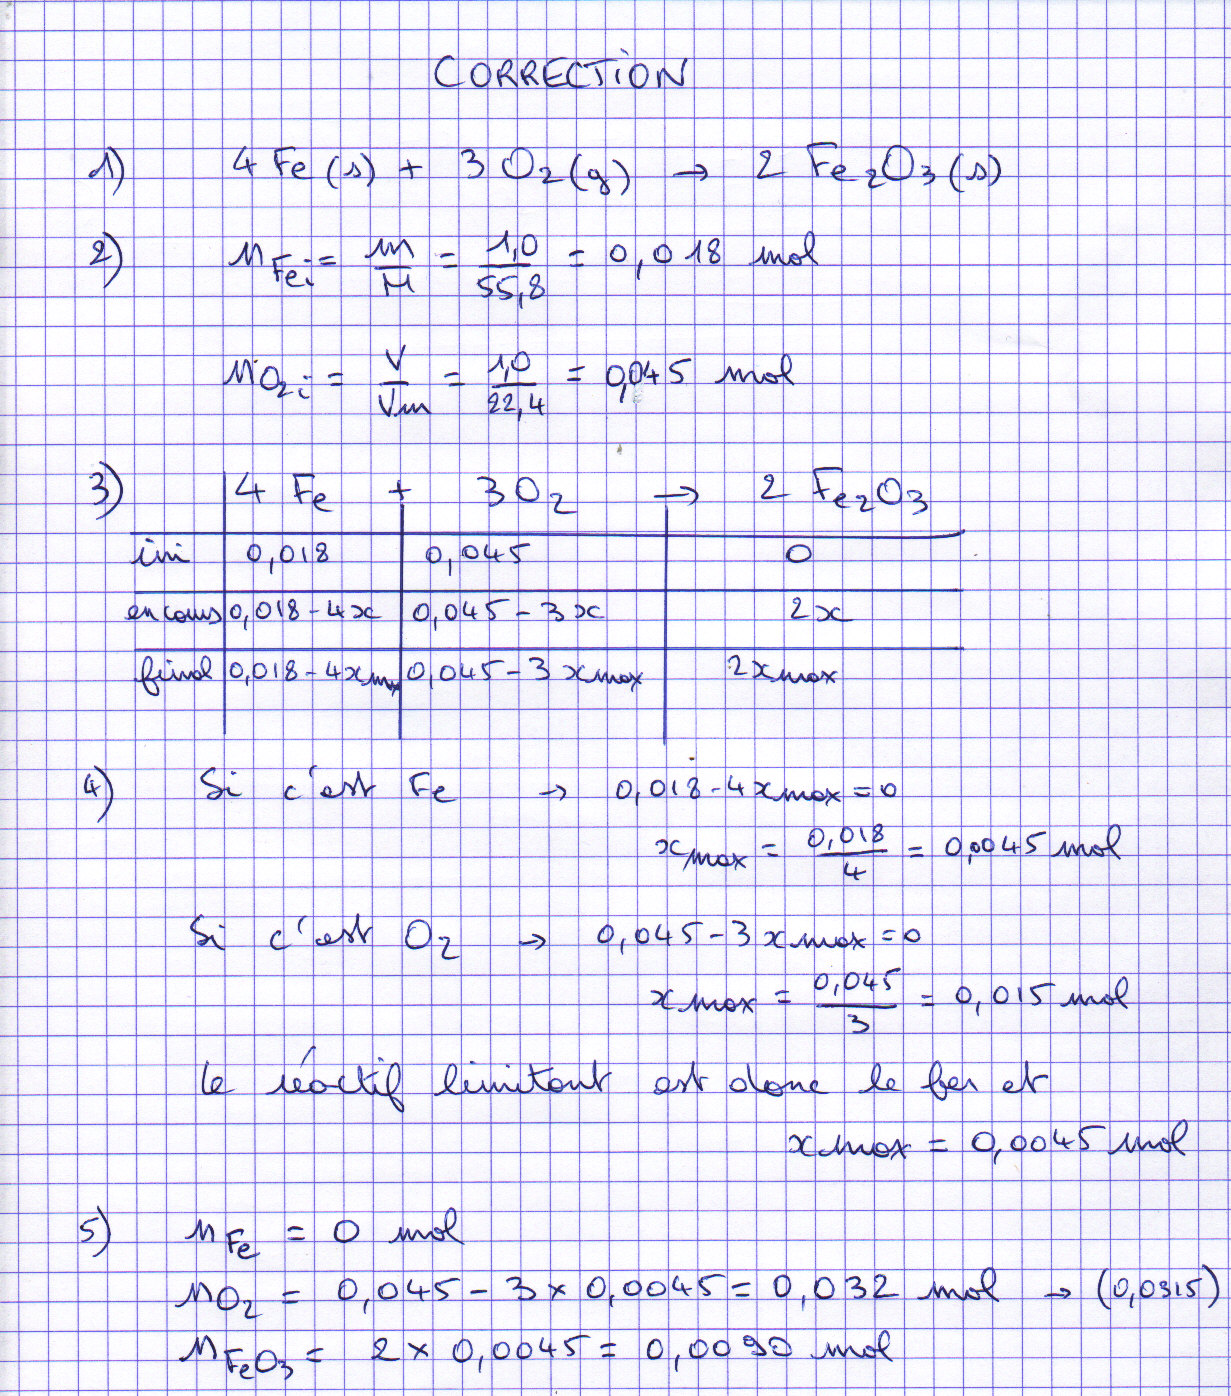 CORRECTION
1) 4 Fe (s) + 3 O2 (g) → 2 Fe2O3 (s)
2) nFei = m/M = 1,0/55,8 = 0,018 mol
nO2i = V/Vm = 1,0/22,4 = 0,045 mol
3) 4 Fe + 3 O2 → 2 Fe2O3
ini 0,018 0,045 0
en cours 0,018 - 4x 0,045 - 3x 2x
final 0,018 - 4xmax 0,045 - 3 xmax 2xmax
4) Si c'est Fe → 0,018 - 4xmax = 0
xmax = 0,018/4 = 0,0045 mol
Si c'est O2 → 0,045 - 3 xmax = 0
xmax = 0,045/3 = 0,015 mol
Le réactif limitant est donc le fer et
xmax = 0,0045 mol
5) nFe = 0 mol
nO2 = 0,045 - 3 × 0,0045 = 0,032 mol → (0,0315)
nFeO3 = 2 × 0,0045 = 0,0090 mol